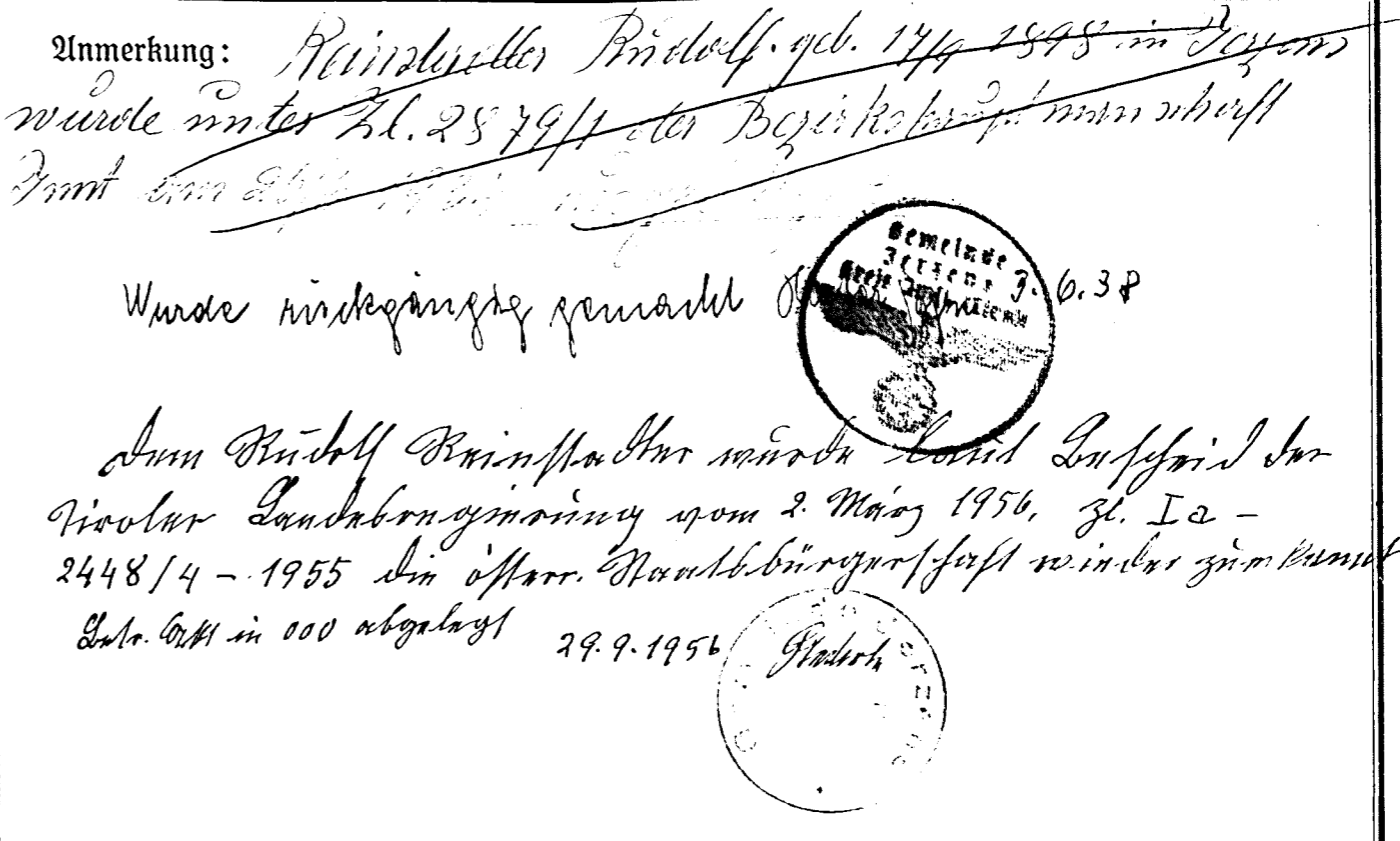 Anmerkung: Reinstadler Rudolf. geb. 17/9 1898 in Jerzens
wurde unter Zl. 2879/1 der Bezirkshauptmannschaft
Imst am
Gemeinde
Jerzens
Kreis
Wurde rückgängig gemacht 3. 6. 38
Dem Rudolf Reinstadler wurde laut Bescheid der
Tiroler Landesregierung vom 2. März 1956, Zl. Ia -
2448/4 - 1955 die österr. Staatsbürgerschaft wieder zuerkannt
Betr. Akt in 000 abgelegt 29. 9. 1956